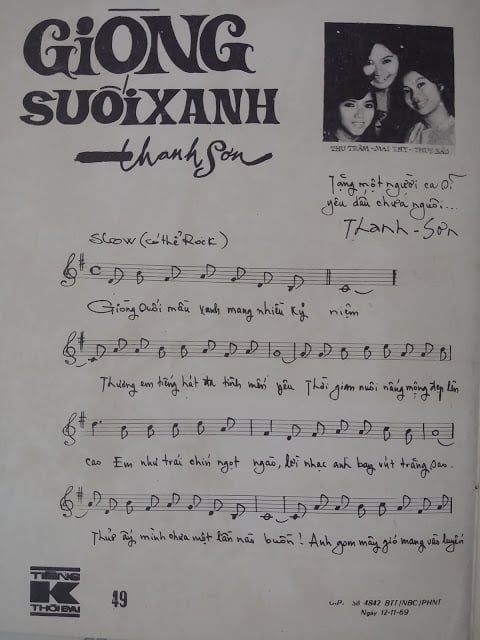 GIÒNG
SUỐI XANH
Thanh Sơn
THU TRÂM - MAI THY - THUY BẢO
Tặng một người ca sĩ
yêu dấu chưa nguôi...
Thanh - Sơn
SLOW (có thể Rock)
Giòng suối mầu xanh mang nhiều kỷ niệm
Thương em tiếng hát đa tình mến yêu Thời gian nuôi nấng mộng đẹp lên
cao Em như trái chín ngọt ngào, lời nhạc anh bay vút trăng sao.
Thuở ấy mình chưa một lần nào buồn! Anh gom mây gió mang vào luyến
TIẾNG
K
THỜI ĐẠI
49
G.P. Số 4842 BTT/NBC/PHNT
Ngày 12-11-69